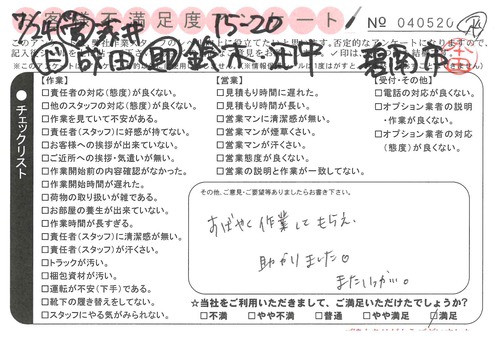 お客様不満足度アンケート
7/24 15-20
№ 040526
鈴木 田中 碧南市
チェックリスト
【作業】
□責任者の対応(態度)が良くない。
□他のスタッフの対応(態度)が良くない。
□作業を見ていて不安がある。
□責任者(スタッフ)に好感が持てない。
□お客様への挨拶が出来ていない。
□ご近所への挨拶・気遣いが無い。
□作業開始前の内容確認がなかった。
□作業開始時間が遅れた。
□荷物の取り扱いが雑である。
□お部屋の養生が出来ていない。
□作業時間が長すぎる。
□責任者(スタッフ)に清潔感が無い。
□責任者(スタッフ)が汗くさい。
□トラックが汚い。
□梱包資材が汚い。
□運転が不安(下手)である。
□靴下の履き替えをしてない。
□スタッフにやる気がみられない。
【営業】
□見積もり時間に遅れた。
□見積もり時間が長い。
□営業マンに清潔感が無い。
□営業マンが煙草くさい。
□営業マンが汗くさい。
□営業態度が良くない。
□営業の説明と作業が一致してない。
【受付・その他】
□電話の対応が良くない。
□オプション業者の説明
・作業が良くない。
□オプション業者の対応
(態度)が良くない。
その他、ご意見・ご要望等ありましたらお書き下さい。
すばやく作業してもらえ
助かりました。
☆当社をご利用いただきまして、ご満足いただけたでしょうか?
□不満 □やや不満 □普通 □やや満足 □満足